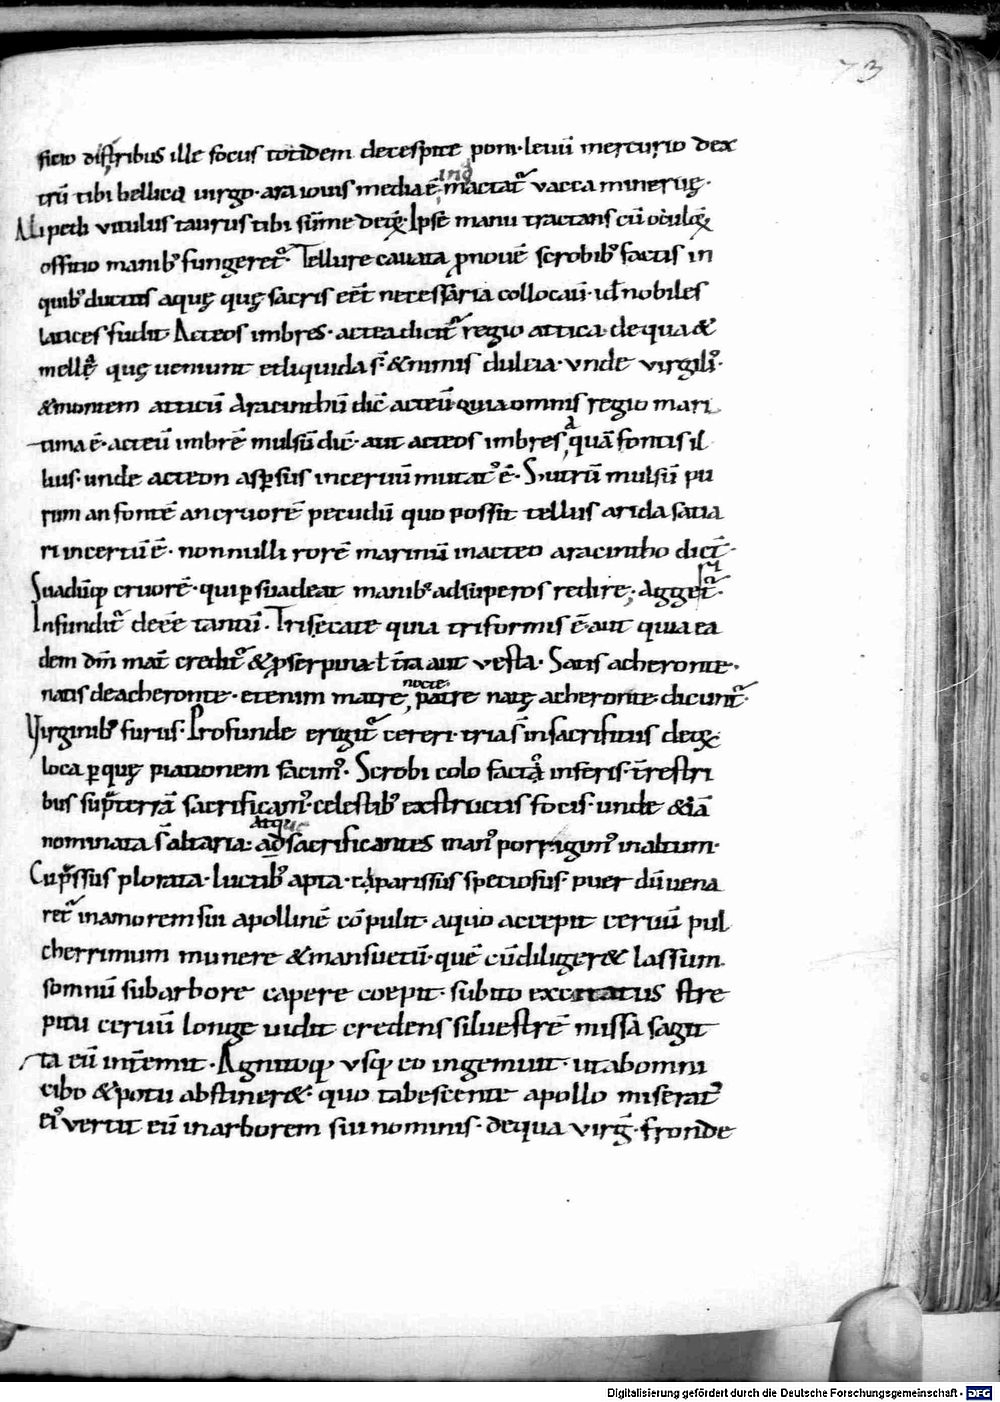 73
ficio distribus ille focus totidem decespite ponit leuū mercurio dex
trū tibi bellica uirgo· ara iouis media ē mactatr̄ vacca mineruę·
Alipedi vitulus taurus tibi sūme deoꝝ Ipse manu tractans cū oculoꝝ
offitio manibꝰ fungeretr̄· Tellure cauata ꝓnouē scrobibꝰ factis in
quibꝰ ductus aquę quę sacris eēt necessaria collocau̅· ul nobiles
latices fudit Acteos imbres· actea dicitr̄ regio attica· de qua &
mella quę ueniunt et liquida s̄· & nimis dulcia· vnde virgiliꝰ·
& montem atticū Aracinthū dic̄ acteū quia omnis regio mari
tima ē· acteū imbrē mulsū dic̄· aut acteos imbres, aquā fontis il
lius· unde acteon aspersus in ceruū mutatꝰ ē· S; utrū mulsū pu
rum an fontē an cruorē pecudū quo possit tellus arida satia
ri incertū ē· nonnulli rorē marinū in acteo aracintho dict̄·
Suadūqꝫ cruorē· qui ꝑsuadeat manibꝰ ad superos redire; Aggeritr̄·
Infunditr̄ de eē tantū· Trisecate quia triformis ē· aut quia ea
dem dm̄ mat̄ creditr̄ & ꝓserpina· ł t̄ra aut vesta· Satis acheronte·
natis de acheronte· etenim matre nocte, patre natę acheronte· dicuntr̄·
Virginibꝰ furiis· Profunde erigitr̄ cereri· tria s̄ in sacrificiis deoꝝ
loca ꝑ quę piationem facimꝰ· Scrobi colo factaꝰ inferis· t̄restri
bus sup̄ terrā sacrificamꝰ· celestibꝰ exstructis focis· unde & iā
nominata s̄ altaria· atque ad sacrificantes manꝰ porrigimꝰ in altum·
Cup̄ssus plorata· luctibꝰ apta· cyparissus speciosus· puer dū uena
retr̄ in amorem sui apollinē cōpulit· a quo accepit ceruū pul
cherrimum munere & mansuetū· quē cū diliger& lassum
somnū sub arbore capere coepit· subito excitatus stre
pitu ceruū longe uidit credens siluestrē missa sagit
ta eū int̄emit· Agnitoqꝫ vsqꝫ eo ingemuit· ut ab omni
cibo & potu abstiner&· quo tabescente apollo miseratꝰ
eiꝰ vertit eū in arborem sui nominis· de qua virḡ· fronde
Digitalisierung gefördert durch die Deutsche Forschungsgemeinschaft - DFG